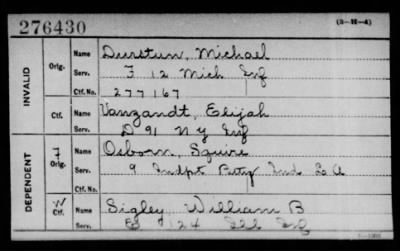 276430
(3-H-4)
INVALID
Orig.
Name Durstun, Michael
Serv. F 12 Mich Inf
Ctf. No. 277167
Ctf.
Name Vanzandt, Elijah
Serv. D 91 N Y Inf
DEPENDENT
Orig.
Name Osborn, Squire
Serv. 9 Indpt Baty Ind L A
Ctf. No.
W Ctf.
Name Sigley William B
Serv. 124 Ill Inf